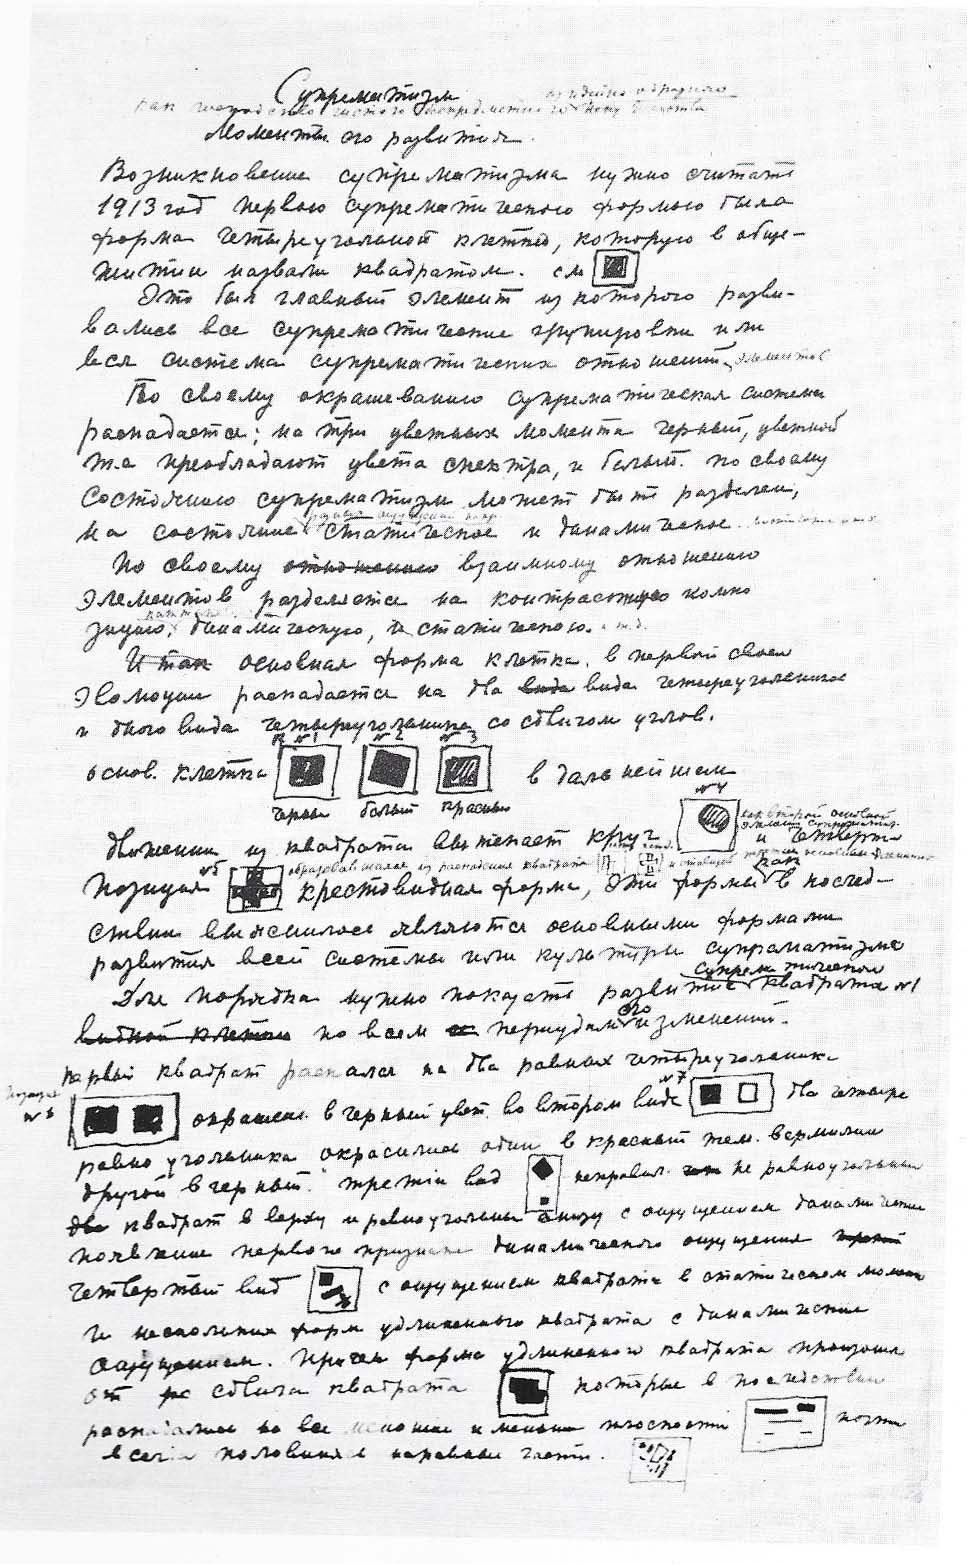 Супрематизм
Моменты его развития.
Возникновение супрематизма нужно считать
1913 год первою супрематическою формою была
форма четыреугольной клетки, которую в обще-
житии назвали квадратом. см
Это был главный элемент из которого разви-
вались все супрематические групировки или
вся система супрематических отношений, элементов
По своему окрашеванию супрематическая система
распадается; на три цветных момента черный, цветной
преобладают цвета спектра, и белый. по своему
состоянию супрематизм может быть разделен,
на состояние статическое и динамическое
По своему отношению взаимному отношению
элементов разделяется на контрастную компо
зицию, динамическую, и статическою. и т.д.
И так основная форма клетка. в первой своей
эволюции распадается на два вида вида четыреугольника
и одного вида четыреугольника со сдвигом углов.
№1 №2 №3
основ. клетка в дальнейшем
черный белый красный
№4
как второй основной
элемент супрематизма.
движении из квадрата вытекает круг и четверта
образовавшаяся из распадения квадрата
позиция №5 крестовидная форма, эти формы как в послед-
ствии выяснилось являются основными формами
развития всей системы или культуры супрематизма
супрематического
Для порядка нужно показать развитие квадрата №1
видной клетки по всем периудам его изменений.
первый квадрат распался на два равных четыреугольника
позиция №6 окрашены в черный цвет. во втором виде №7 два четыре
равно угольника окрасились один в красный тем. вермилии
другой в черный. третий вид неправил. не равноугольный
два квадрат в верху и равноугольный внизу с ощущением динамически
появление первого признака динамического ощущения
четвертый вид с ощущением квадрата в статическом момен
и нескольких форм удлиненного квадрата с динамическим
ощущением. Причем форма удлиненного квадрата произошла
от сдвига квадрата которые в последствии
распадались на все меньшие и меньшие плоскости почти
всегда половиня и неравные части.